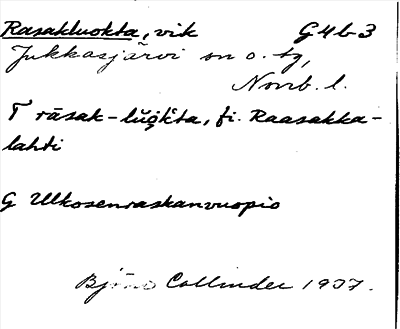 Rasakluokta, vik G4b3
Jukkasjärvi sn o. tg,
Norrb. l.
T rāsak-lŭǫkta, fi. Raasakka-
lahti
G Ulkosenraskanvuopio
Björn Collinder 1937.